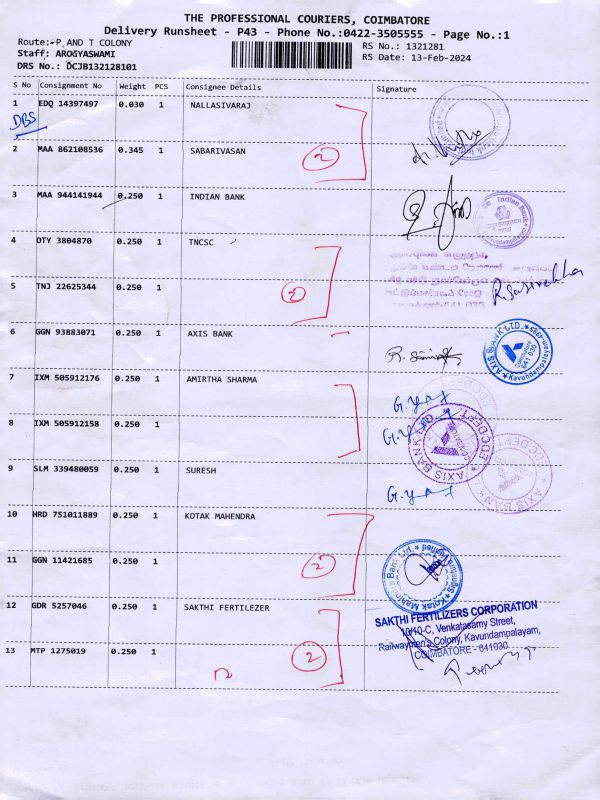 THE PROFESSIONAL COURIERS, COIMBATORE
Delivery Runsheet - P43 - Phone No.:0422-3505555 - Page No.:1
Route:-P AND T COLONY
RS No.: 1321281
Staff: AROGYASWAMI
RS Date: 13-Feb-2024
DRS No.: OCJB132128101
S No Consignment No Weight PCS Consignee Details Signature
1 EDQ 14397497 0.030 1 NALLASIVARAJ
DBS
2 MAA 862108536 0.345 1 SABARIVASAN
2
3 MAA 944141944 0.250 1 INDIAN BANK
Indian Bank
4 OTY 3804870 0.250 1 TNCSC
5 TNJ 22625344 0.250 1
2
6 GGN 93883071 0.250 1 AXIS BANK
AXIS BANK LTD.
Kavundampalayam
641 030
7 IXM 505912176 0.250 1 AMIRTHA SHARMA
8 IXM 505912158 0.250 1
AXIS BANK
DC DEPT
9 SLM 339480059 0.250 1 SURESH
10 HRD 751011889 0.250 1 KOTAK MAHENDRA
11 GGN 11421685 0.250 1
2
Kotak Mahindra Bank Ltd.
12 GDR 5257046 0.250 1 SAKTHI FERTILEZER
SAKTHI FERTILIZERS CORPORATION
10/10-C, Venkatasamy Street,
Railwaymen's Colony, Kavundampalayam,
COIMBATORE - 641030
13 MTP 1275019 0.250 1
2